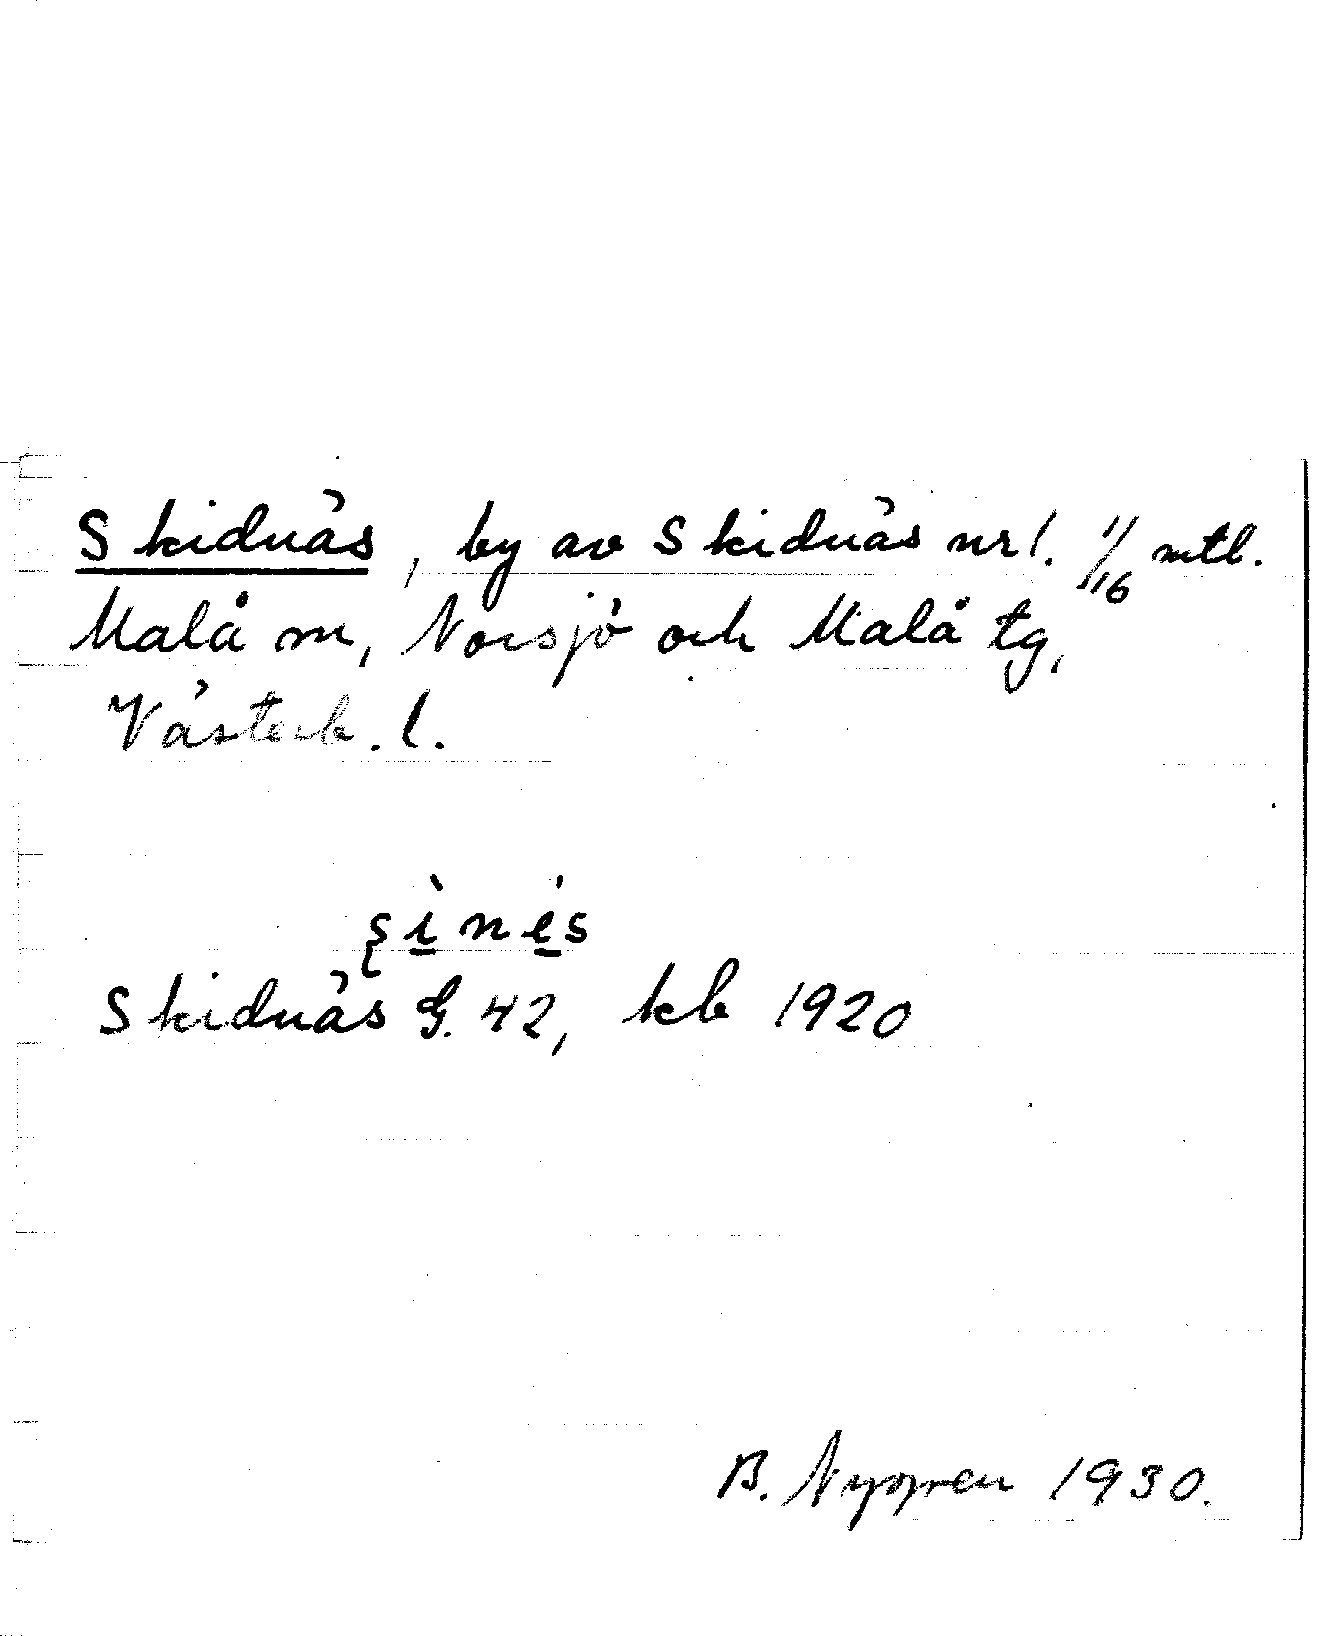 Skidnäs, by av Skidnäs nr 1. 11/16 mtl.
Malå sn, Norsjö och Malå tg,
Västerb. l.
Skidnäs G. 42, kb 1920
B. 1930.